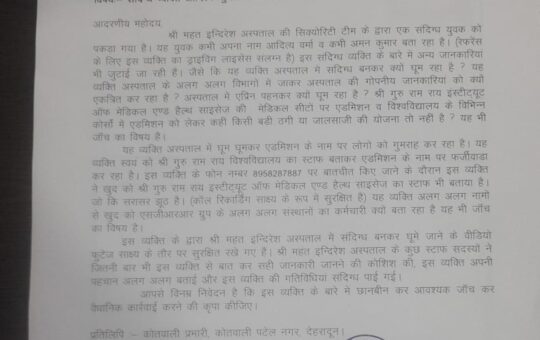 आदरणीय महोदय,
श्री महंत इन्दिरेश अस्पताल की सिक्योरिटी टीम के द्वारा एक संदिग्ध युवक को
पकड़ा गया है। यह युवक कभी अपना नाम आदित्य वर्मा व कभी अमन कुमार बता रहा है। (रेफरेंस
के लिए इस व्यक्ति का ड्राइविंग लाइसेंस सलग्न है) इस संदिग्ध व्यक्ति के बारे में अन्य जानकारियां
भी जुटाई जा रही हैं। जैसे कि यह व्यक्ति अस्पताल में संदिग्ध बनकर क्यों घूम रहा है ? यह
व्यक्ति अस्पताल के अलग अलग विभागों में जाकर अस्पताल की गोपनीय जानकारियां को क्यों
एकत्रित कर रहा है ? अस्पताल में एप्रिन पहनकर क्यों घूम रहा है ? श्री गुरु राम राय इंस्टीट्यूट
ऑफ मेडिकल एण्ड हैल्थ साइसेज की मेडिकल सीटों पर एडमिशन व विश्वविद्यालय के विभिन्न
कोर्सों में एडमिशन को लेकर कहीं किसी बड़ी ठगी या जालसाजी की योजना तो नहीं है ? यह भी
जाँच का विषय है।
यह व्यक्ति अस्पताल में घूम घूमकर एडमिशन के नाम पर लोगों को गुमराह कर रहा है। यह
व्यक्ति स्वयं को श्री गुरु राम राय विश्वविद्यालय का स्टाफ बताकर एडमिशन के नाम पर फर्जीवाड़ा
कर रहा है। इस व्यक्ति के फोन नम्बर 8958287887 पर बातचीत किए जाने के दौरान इस व्यक्ति
ने खुद को श्री गुरु राम राय इंस्टीट्यूट ऑफ मेडिकल एण्ड हेल्थ साइसेज का स्टाफ भी बताया है।
जो कि सरासर झूठ है। (कॉल रिकार्डिंग साक्ष्य के रूप में सुरक्षित है) यह व्यक्ति अलग अलग नामों
से खुद को एसजीआरआर ग्रुप के अलग अलग संस्थानों का कर्मचारी क्यों बता रहा है यह भी जाँच
का विषय है।
इस व्यक्ति के द्वारा श्री महंत इन्दिरेश अस्पताल में संदिग्ध बनकर घूमे जाने के वीडियो
फुटेज साक्ष्य के तौर पर सुरक्षित रखे गए हैं। श्री महंत इन्दिरेश अस्पताल के कुछ स्टाफ सदस्यों ने
जितनी बार भी इस व्यक्ति से बात कर सही जानकारी जानने की कोशिश की, इस व्यक्ति अपनी
पहचान अलग अलग बताई और इस व्यक्ति की गतिविधियां संदिग्ध पाई गईं।
आपसे विनम्र निवेदन है कि इस व्यक्ति के बारे में छानबीन कर आवश्यक जाँच कर
वैधानिक कार्रवाई करने की कृपा कीजिए।
प्रतिलिपि :- कोतवाली प्रभारी, कोतवाली पटेल नगर, देहरादून।